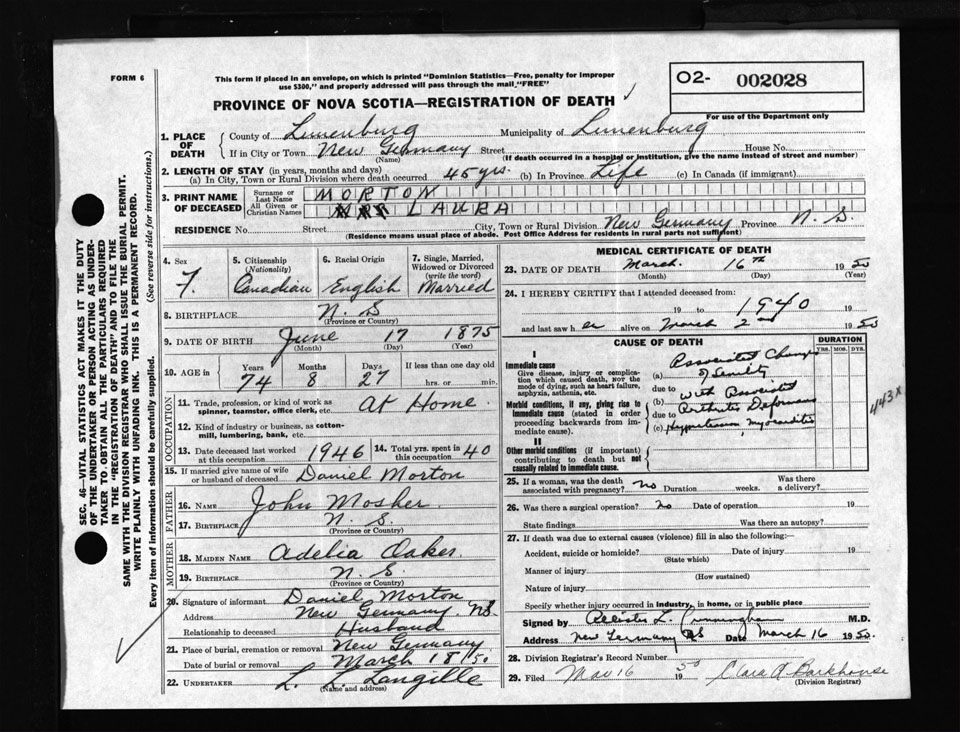 FORM 6
This form if placed in an envelope, on which is printed "Dominion Statistics—Free, penalty for improper
use $300," and properly addressed will pass through the mail "FREE"
O2- 002028
For use of the Department only
PROVINCE OF NOVA SCOTIA—REGISTRATION OF DEATH
1. PLACE OF DEATH
County of Lunenburg Municipality of Lunenburg
If in City or Town New Germany Street House No.
(Name) (If death occurred in a hospital or institution, give the name instead of street and number)
2. LENGTH OF STAY (in years, months and days)
(a) In City, Town or Rural Division where death occurred 45 yrs. (b) In Province Life (c) In Canada (if immigrant)
3. PRINT NAME OF DECEASED
Surname or Last Name MORTON
All Given or Christian Names LAURA
RESIDENCE No. Street City, Town or Rural Division New Germany Province N. S.
(Residence means usual place of abode. Post Office Address for residents in rural parts not sufficient)
4. Sex F.
5. Citizenship (Nationality) Canadian
6. Racial Origin English
7. Single, Married, Widowed or Divorced (write the word) Married
8. BIRTHPLACE N. S
(Province or Country)
9. DATE OF BIRTH June 17 1875
(Month) (Day) (Year)
10. AGE in Years 74 Months 8 Days 27 If less than one day old hrs. or min.
OCCUPATION
11. Trade, profession, or kind of work as spinner, teamster, office clerk, etc. At Home
12. Kind of industry or business, as cotton-mill, lumbering, bank, etc.
13. Date deceased last worked at this occupation 1946
14. Total yrs. spent in this occupation 40
15. If married give name of wife or husband of deceased Daniel Morton
FATHER
16. NAME John Mosher
17. BIRTHPLACE N. S.
(Province or Country)
MOTHER
18. MAIDEN NAME Adelia Oakes
19. BIRTHPLACE N. S.
(Province or Country)
20. Signature of informant Daniel Morton
Address New Germany. NS
Relationship to deceased Husband
21. Place of burial, cremation or removal New Germany
Date of burial or removal March 18/50
22. UNDERTAKER L. L. Langille
(Name and address)
MEDICAL CERTIFICATE OF DEATH
23. DATE OF DEATH March 16th 1950
(Month) (Day) (Year)
24. I HEREBY CERTIFY that I attended deceased from:
19 to 1940
and last saw her alive on March 2nd 1950
CAUSE OF DEATH
DURATION
YRS. MOS. DYS.
I
Immediate cause
Give disease, injury or complication which caused death, NOT the mode of dying, such as heart failure, asphyxia, asthenia, etc.
(a) of Senility
due to with
Morbid conditions, if any, giving rise to immediate cause (stated in order proceeding backwards from immediate cause).
(b)
due to Arthritis Deformans
(c) Hypertension myocarditis
443X
II
Other morbid conditions (if important) contributing to death but not causally related to immediate cause.
25. If a woman, was the death associated with pregnancy? no Duration weeks. Was there a delivery?
26. Was there a surgical operation? no Date of operation 19
State findings Was there an autopsy?
27. If death was due to external causes (violence) fill in also the following:—
Accident, suicide or homicide? Date of injury 19
(State which)
Manner of injury
(How sustained)
Nature of injury
Specify whether injury occurred in industry, in home, or in public place
Signed by L. Cunningham M.D.
Address New Germany NS Date March 16 1950.
28. Division Registrar's Record Number
29. Filed Mar 16 1950 Clara A Barkhouse
(Division Registrar)
SEC. 46—VITAL STATISTICS ACT MAKES IT THE DUTY
OF THE UNDERTAKER OR PERSON ACTING AS UNDER-
TAKER TO OBTAIN ALL THE PARTICULARS REQUIRED
IN THE "REGISTRATION OF DEATH" AND TO FILE THE
SAME WITH THE DIVISION REGISTRAR WHO SHALL ISSUE THE BURIAL PERMIT.
WRITE PLAINLY WITH UNFADING INK. THIS IS A PERMANENT RECORD.
Every item of information should be carefully supplied. (See reverse side for instructions.)